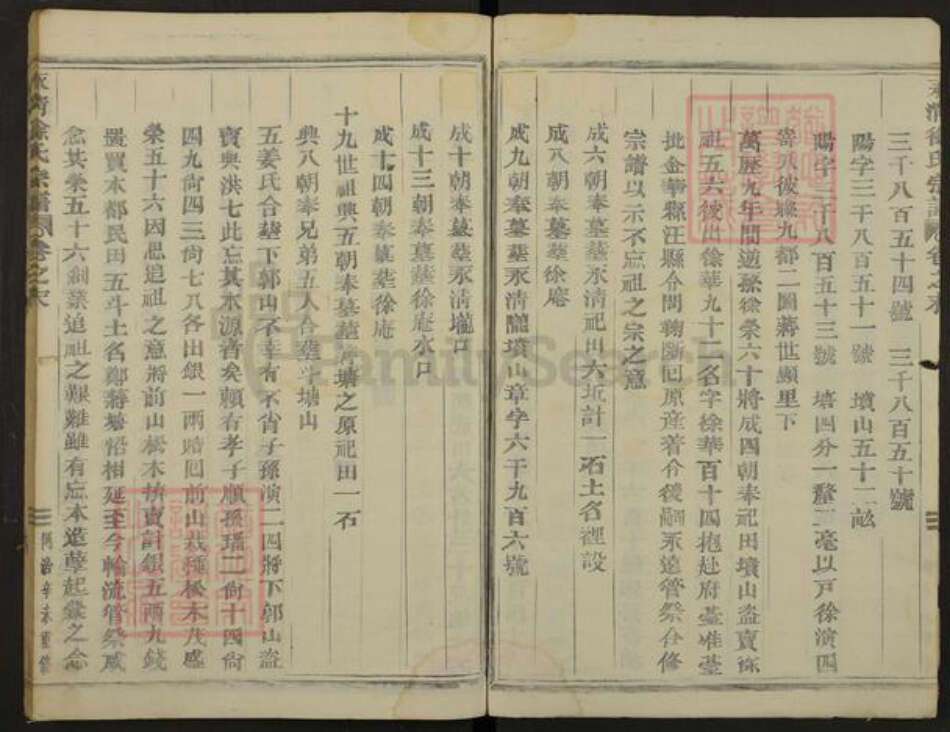 永清徐氏宗譜卷之末
三千八百五十四號 三千八百五十號
陽字三千八百五十一號 墳山五十二畝
陽字三千八百五十三號 塘四分一釐二毫以戸徐演四
寄災彼縣九都二圖蔣世顯里下
萬歷九年間遊孫徐榮六十將成四朝奉祀田墳山盜賣孫
祖五六彼出徐華九十二名字徐華百十四抱赴府臺准臺
批金華縣汪縣令問鞫斷回原産着令後嗣永遠管祭合修
宗譜以示不忘祖之宗之意
成六朝奉墓葬永清祀田六坵計一石土名裡設
成八朝奉墓葬徐庵
成九朝奉墓葬永清隴墳山章字六千九百六號
成十朝奉墓葬永清壠口
成十三朝奉墓葬徐庵水口
成十四朝奉墓葬徐庵
十九世祖興五朝奉墓葬斗塘之原祀田一石
興八朝奉兄弟五人合葬斗塘山
五姜氏合葬下郭山不幸有不肖子孫演二四將下郭山盜
賣與洪七此忘其水源者矣賴有孝子順孫璠二尙十四尙
四九尙四三尙七八各出銀一兩贖囘前山栽種松木茂盛
榮五十六因思追祖之意將前山松木拚賣計銀五兩九錢
置買本都民田五斗土名鄭蔣塘沿相延至今輪流管祭咸
念其榮五十六創業追祖之艱難雖有忘本造孽起彙之念
永清徐氏宗譜卷之末
辛未重修